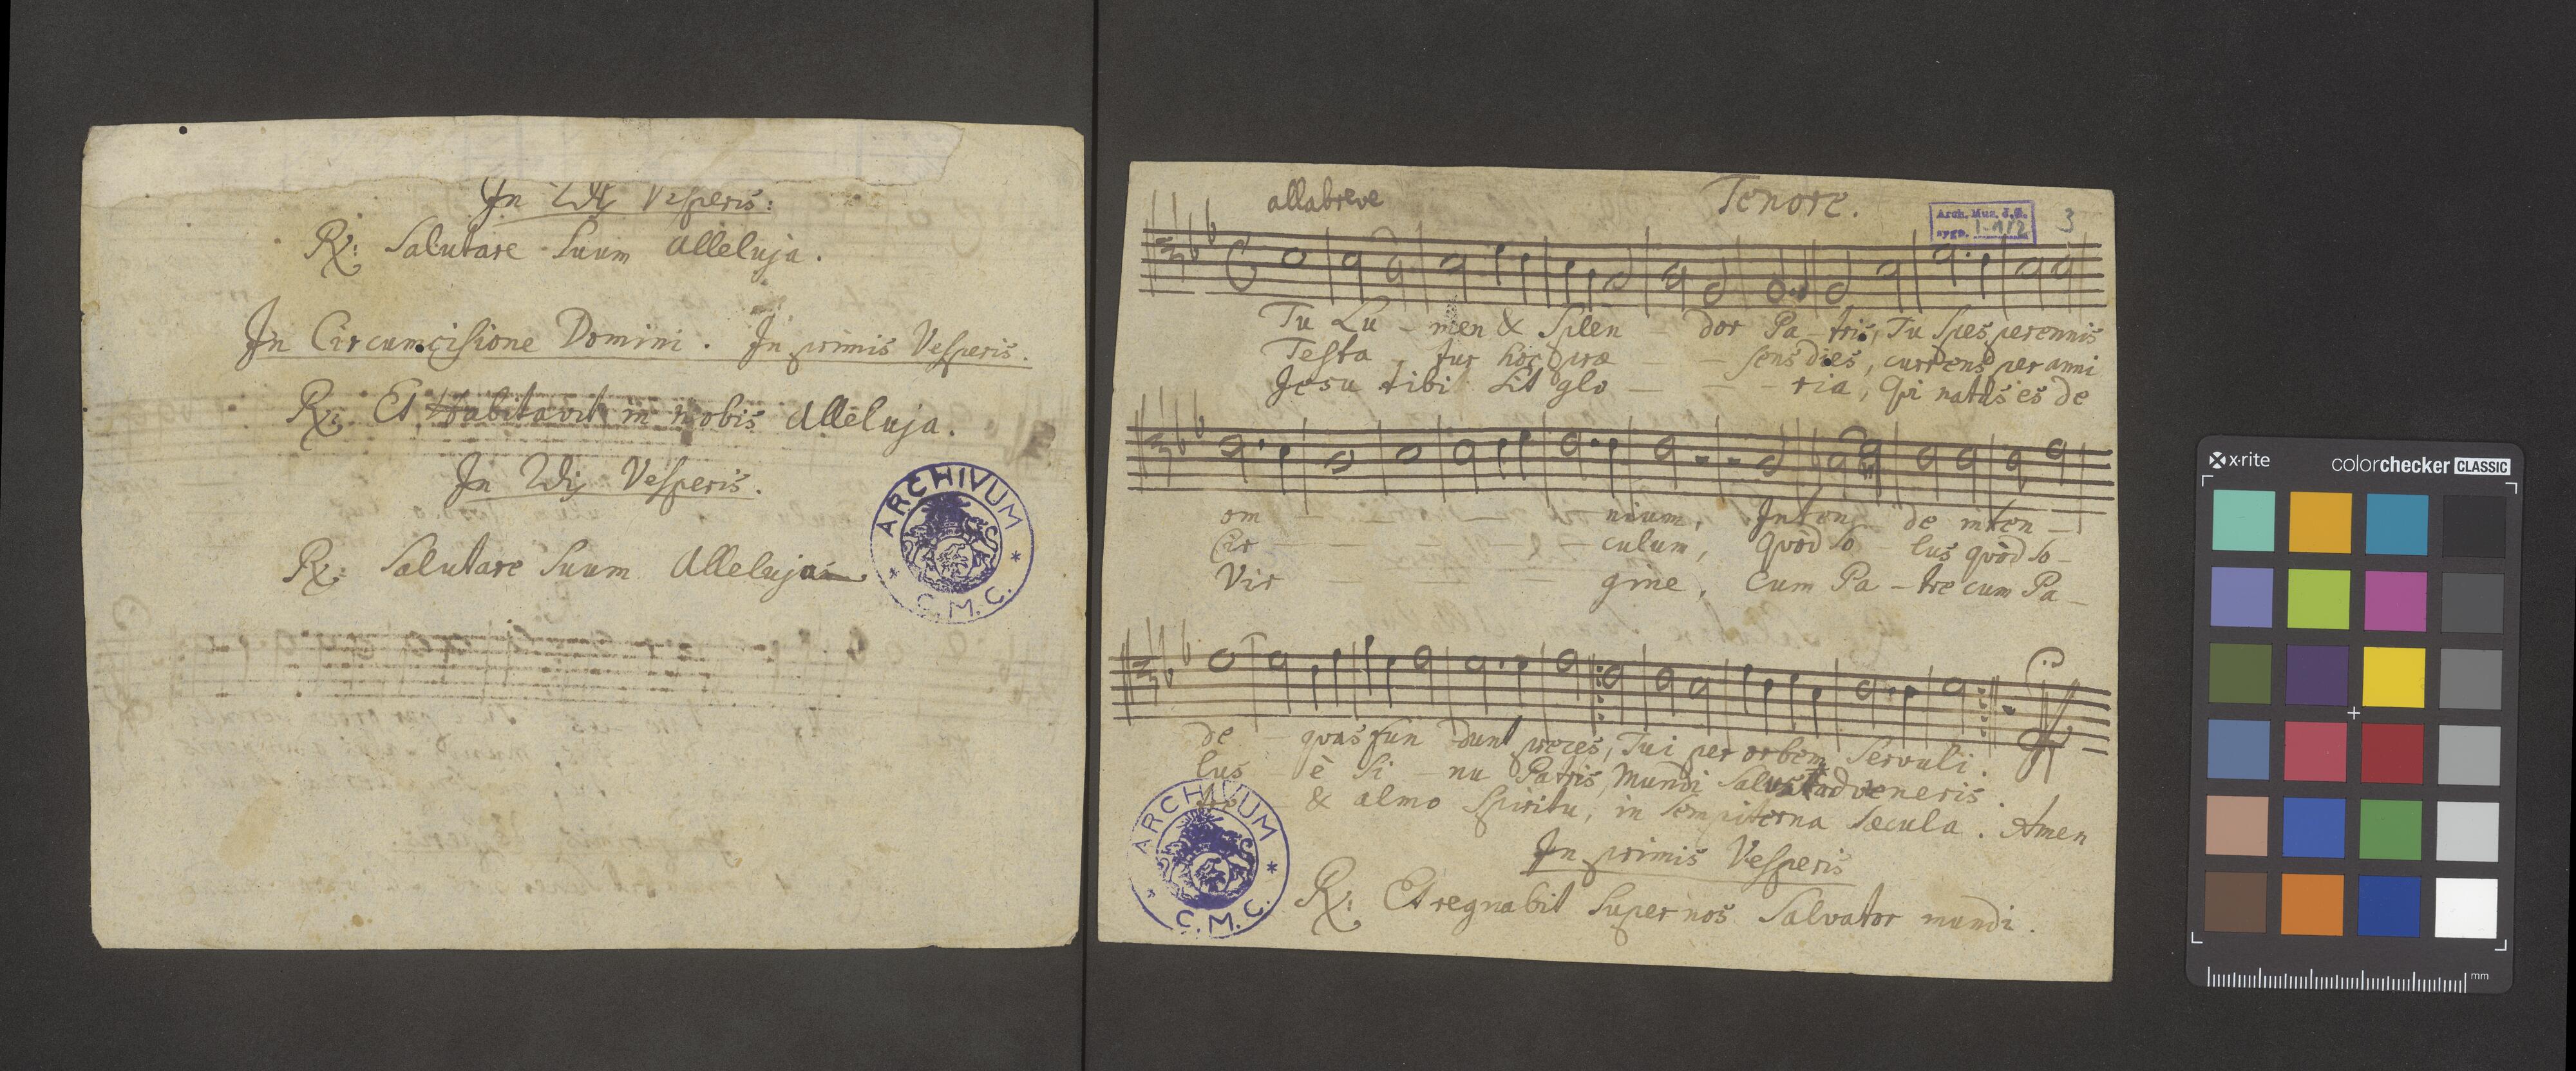 In 2dis Vesperis:
℟: Salutare Suum Alleluja.
In Circumcisione Domini. In primis Vesperis.
℟: Et Habitavit in nobis Alleluja.
In 2dis Vesperis.
℟: Salutare Suum Alleluja
ARCHIVUM
C.M.C.
allabreve Tenore.
Arch. Muz. J.G.
sygn. I-112
3
Tu Lu - men & Splen - dor Pa - tris, Tu Spes perennis
Testa - tur hoc præ - - sens dies, currens per anni
Jesu tibi Sit glo - - - ria, Qi natus es de
om - - - - nium, Inten - de inten -
Cir - - - - - culum, Quod So - lus quod So -
Vir gine, Cum Pa - tre cum Pa -
de - quas fun - dunt preces, Tui per orbem Servuli.
lus - è Si - nu Patris, Mundi Salus adveneris.
& almo Spiritu, in Sempiterna Sæcula. Amen
In primis Vesperis
℟: Et regnabit Super nos Salvator mundi.
ARCHIVUM
C.M.C.
x-rite
colorchecker CLASSIC
mm